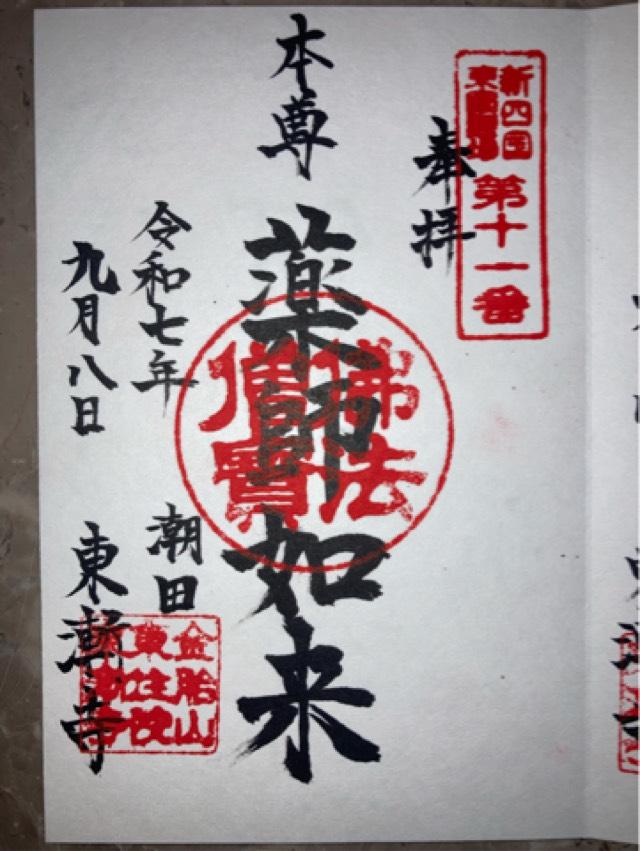 新四国
東
第十一番
奉拝
本尊
薬師如来
佛法
僧寶
令和七年
九月八日
潮田
東漸寺
金胎山
東住院